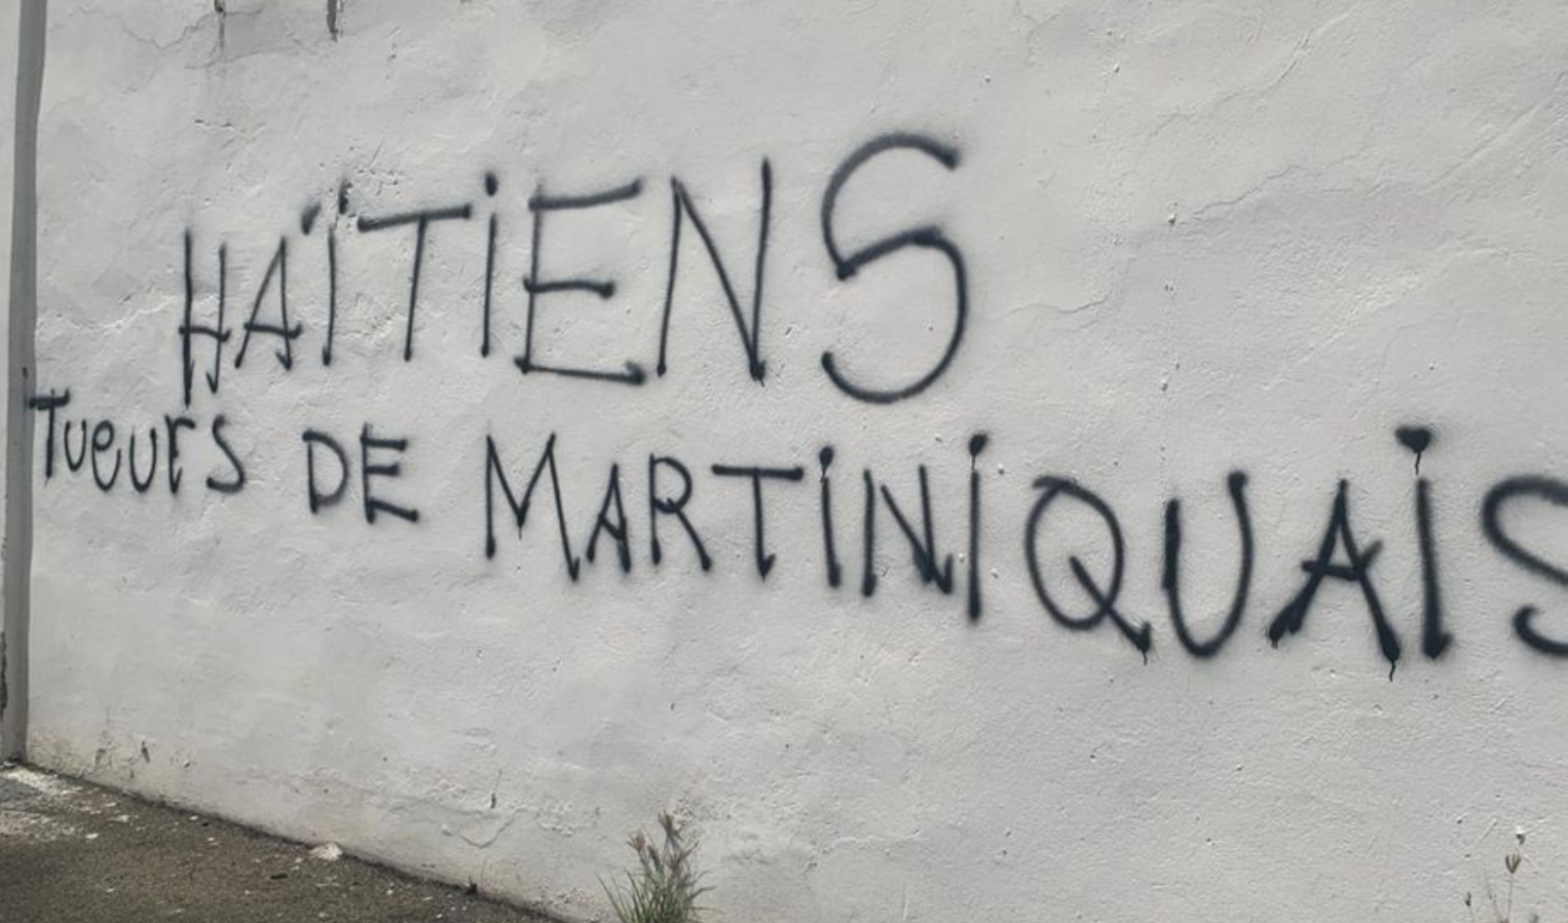 HAÏTIENS
Tueurs DE MARTINIQUAIS